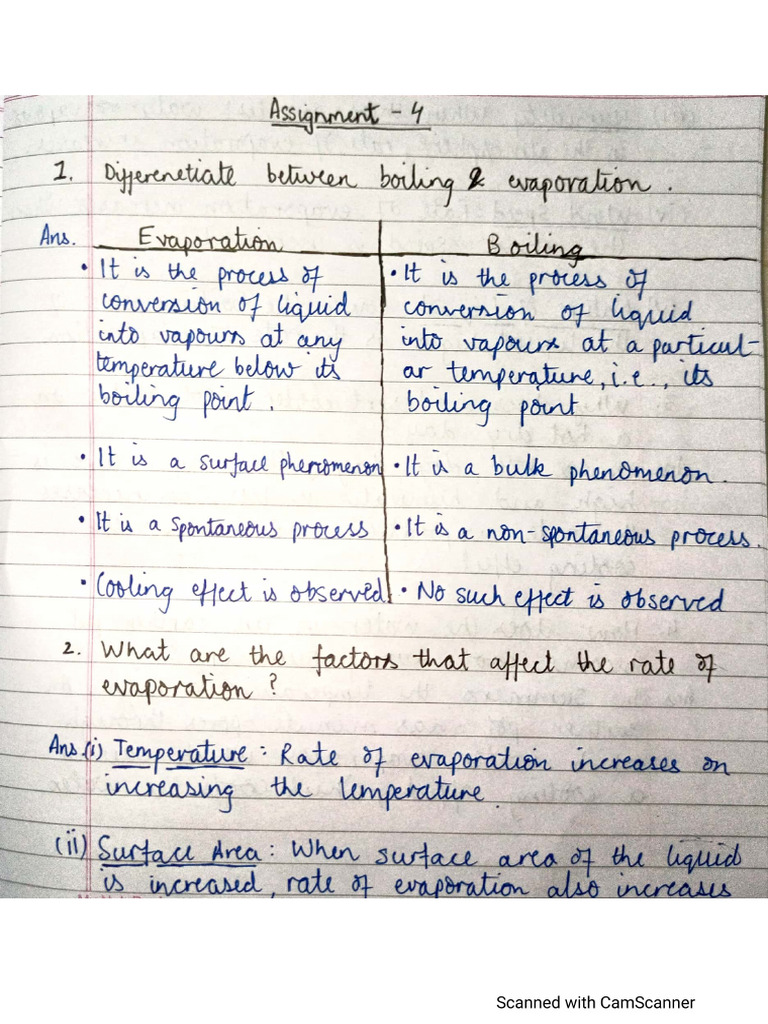 Assignment - 4
1. Differenetiate between boiling & evaporation.
Ans. Evaporation Boiling
• It is the process of
conversion of liquid
into vapours at any
temperature below its
boiling point.
• It is a surface phenomenon
• It is a spontaneous process
• Cooling effect is observed
• It is the process of
conversion of liquid
into vapours at a particul-
ar temperature, i.e., its
boiling point
• It is a bulk phenomenon.
• It is a non-spontaneous process.
• No such effect is observed
2. What are the factors that affect the rate of
evaporation?
Ans.(i) Temperature: Rate of evaporation increases on
increasing the temperature.
(ii) Surface Area: When surface area of the liquid
is increased, rate of evaporation also increases
Scanned with CamScanner